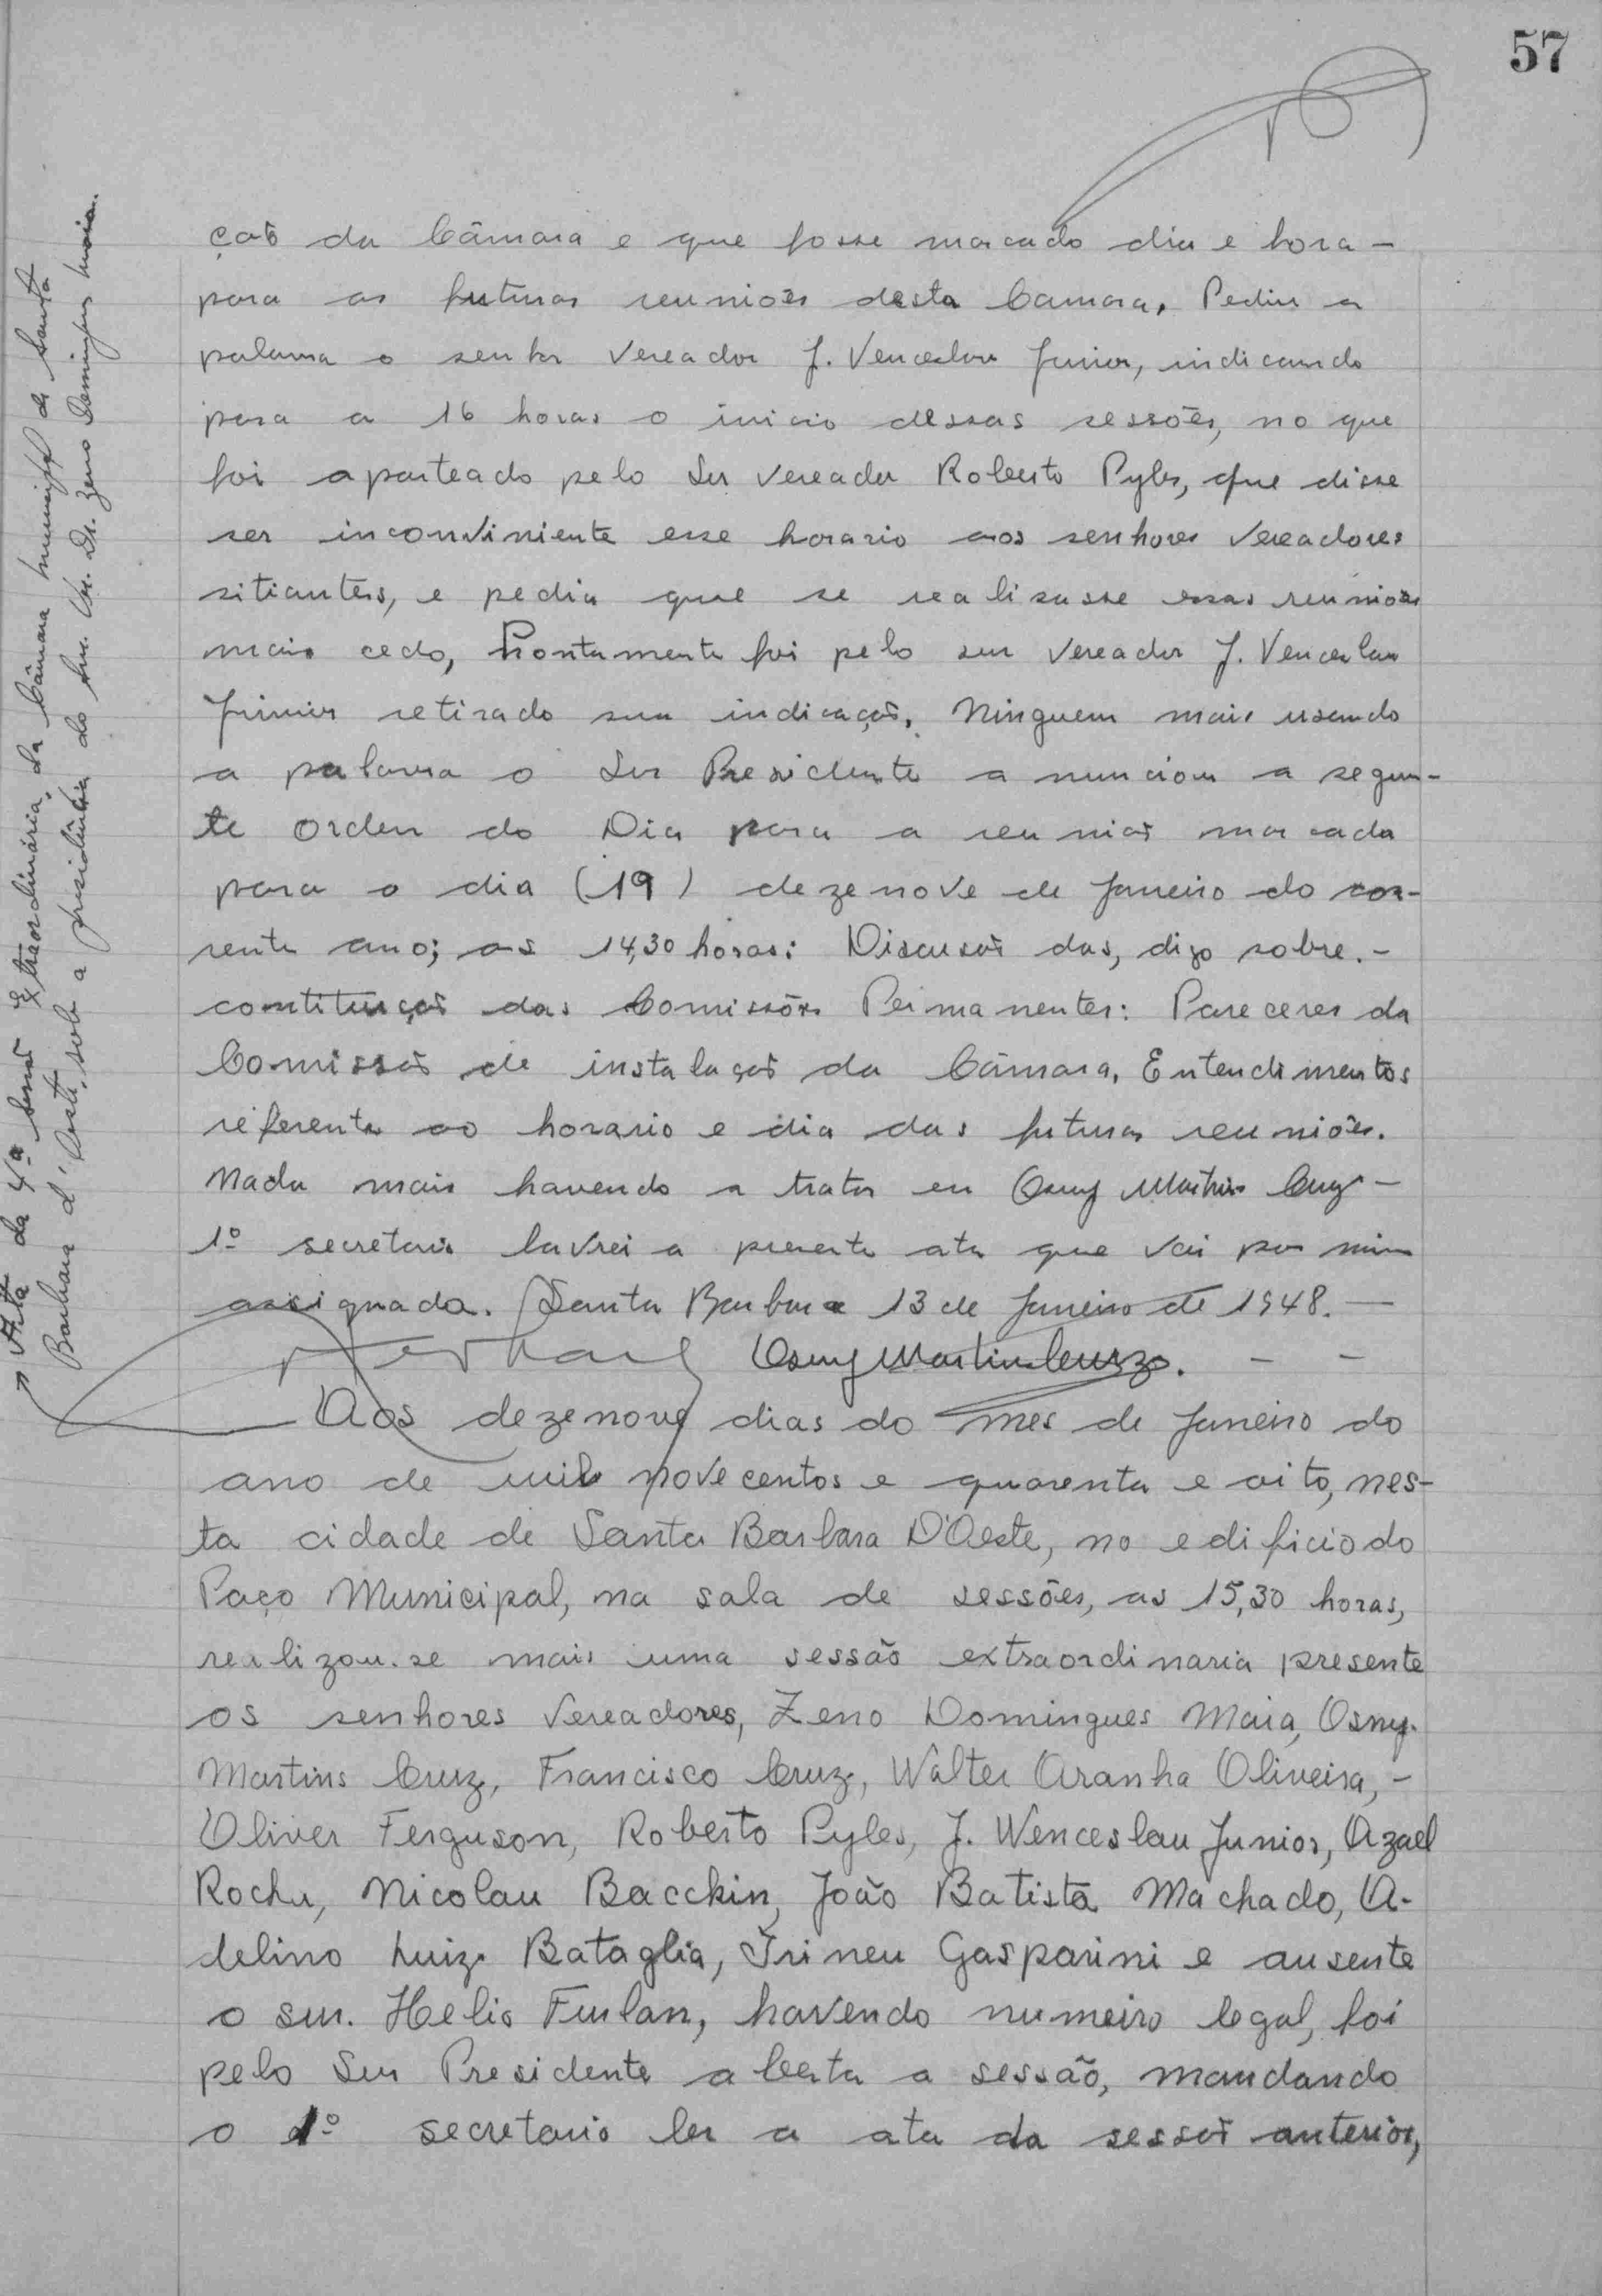 57
ção da Câmara e que fosse marcado dia e hora -
para as futuras reuniões desta Camara, Pediu a
palavra o senhor Vereador J. Venceslau Junior, indicando
para a 16 horas o inicio dessas sessões, no que
foi aparteado pelo Snr Vereador Roberto Pyles, que disse
ser inconviniente esse horario aos senhores Vereadores
sitiantes, e pedia que se realisasse essas reuniões
mais cedo, Prontamente foi pelo snr Vereador J. Venceslau
Junior retirado sua indicação. Ninguem mais usando
a palavra o Snr Presidente anunciou a seguin-
te Orden do Dia para a reunião marcada
para o dia (19) dezenove de Janeiro do cor-
rente ano; as 14,30 horas: Discusão das, digo sobre.-
contituição das Comissões Permanentes: Pareceres da
Comissão de instalação da Câmara, Entendimentos
referente ao horario e dia das futuras reuniões.
Nada mais havendo a tratar eu Osny Martins Cruz -
1º secretario lavrei a presente ata que vai por mim
assignada. Santa Barbara 13 de Janeiro de 1948. -
Osny Martins Cruz. - -
Aos dezenove dias do mes de Janeiro do
ano de mil novecentos e quarenta e oito, nes-
ta cidade de Santa Barbara D'Oeste, no edificio do
Paço Municipal, na sala de sessões, as 15,30 horas,
realizou-se mais uma sessão extraordinaria presente
os senhores Vereadores, Zeno Domingues Maia, Osny.
Martins Cruz, Francisco Cruz, Walter Aranha Oliveira, -
Oliver Ferguson, Roberto Pyles, J. Wenceslau Junior, Azael
Rocha, Nicolau Bacckin, João Batista Machado, A-
delino Luiz Bataglia, Irineu Gasparini e ausente
o snr. Helio Furlan, havendo numeiro legal, foi
pelo Snr Presidente aberta a sessão, mandando
o 1º secretario ler a ata da sessão anterior,
Acta da 4ª sessão Extraordinária, da Câmara municipal de Santa
Barbara d'Oeste, sob a presidência do Snr. Ver. Dr. Zeno Domingues Maia.